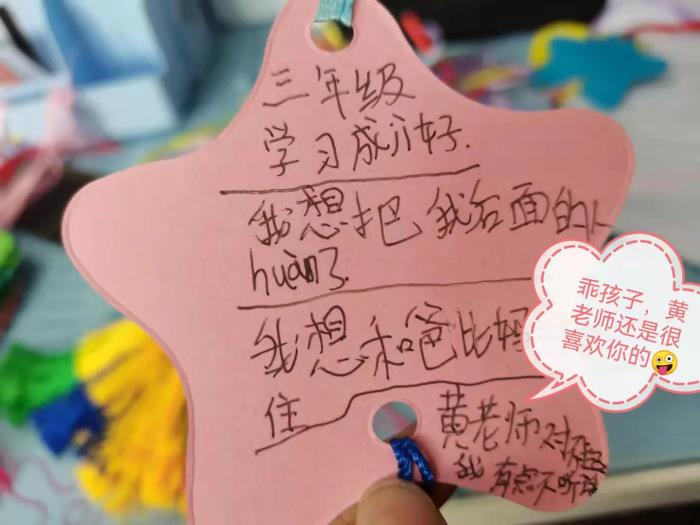 三年级
学习成ji好.
我想把我后面的人
huàn了.
我想和爸比妈
住
黄老师对不起
我有点不听话
乖孩子，黄
老师还是很
喜欢你的🤪